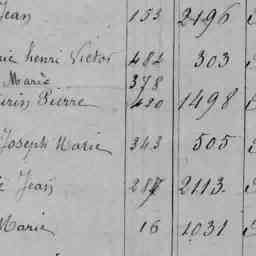 Jean 153 2496
henri Victor 484 303
Marie 378
Pierre 480 1498
Joseph Marie 343 505
Jean 287 2113.
Marie 16 1031